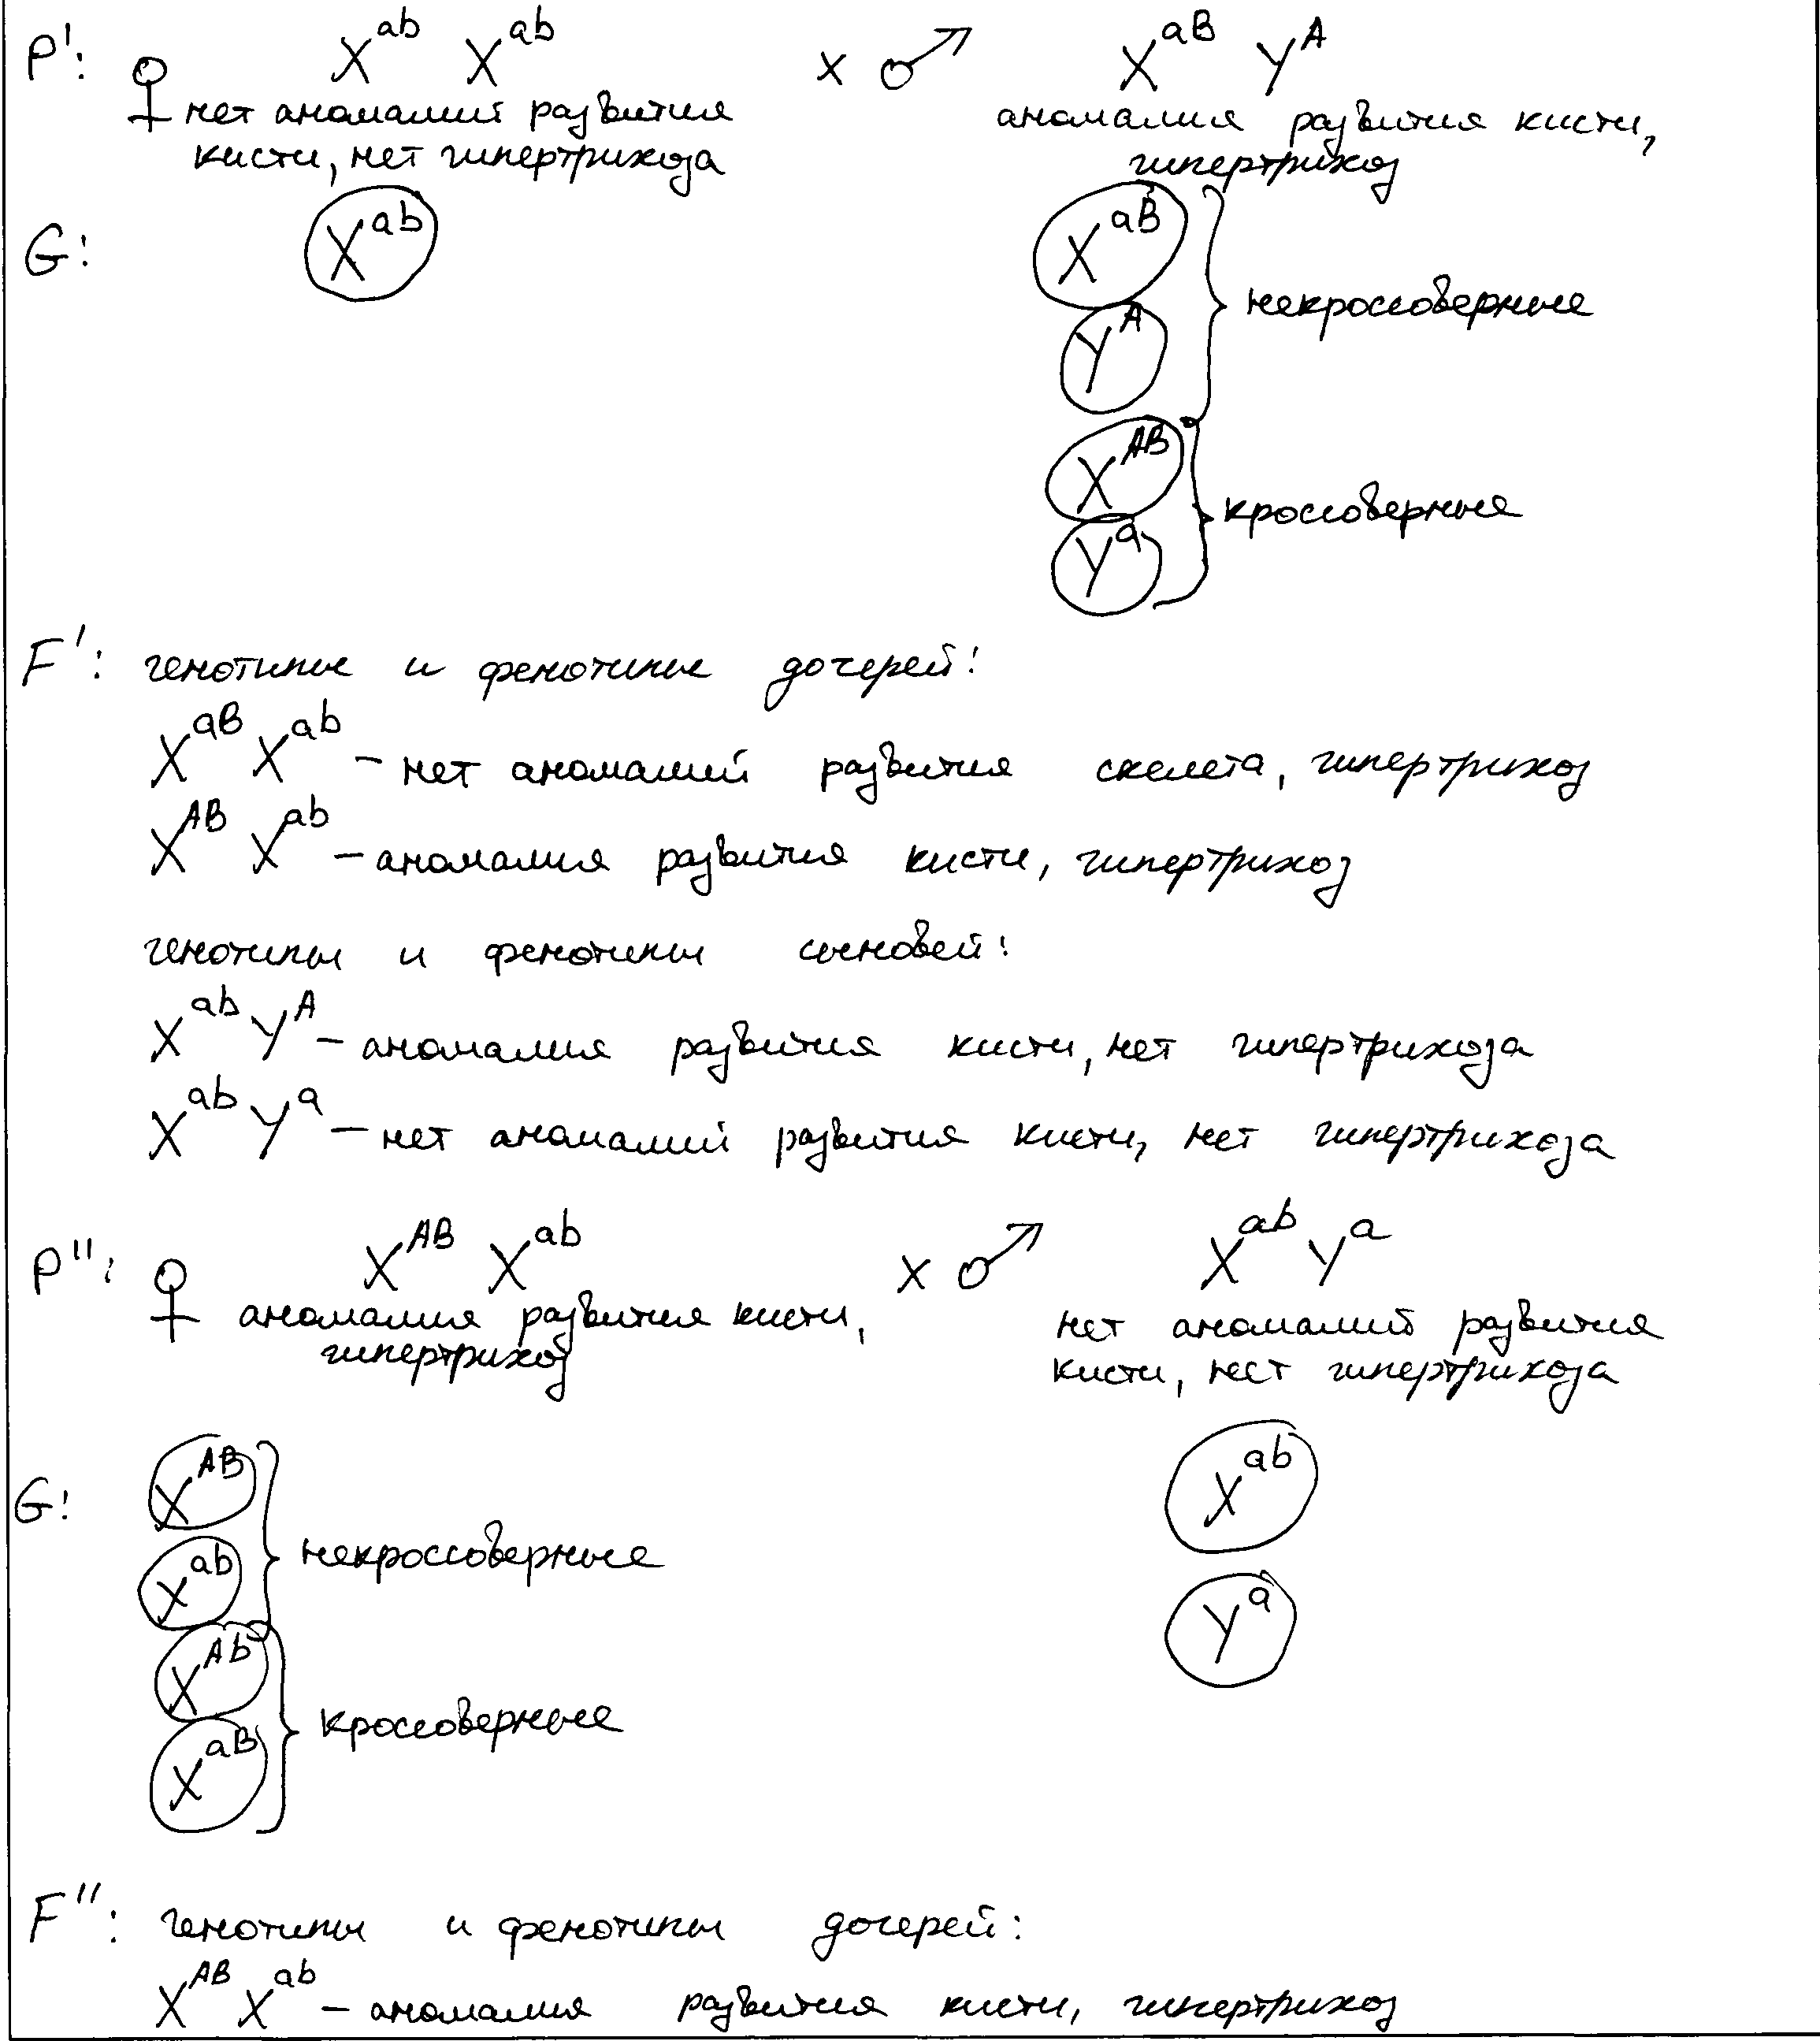 P': ♀ X^ab X^ab × ♂ X^aB Y^A
нет аномалий развития кисти, нет гипертрихоза
аномалия развития кисти, гипертрихоз
G: X^ab
X^aB
Y^A
некроссоверные
X^AB
Y^a
кроссоверные
F': генотипы и фенотипы дочерей:
X^aB X^ab – нет аномалий развития скелета, гипертрихоз
X^AB X^ab – аномалия развития кисти, гипертрихоз
генотипы и фенотипы сыновей:
X^ab Y^A – аномалия развития кисти, нет гипертрихоза
X^ab Y^a – нет аномалий развития кисти, нет гипертрихоза
P'': ♀ X^AB X^ab × ♂ X^ab Y^a
аномалия развития кисти, гипертрихоз
нет аномалий развития кисти, нест гипертрихоза
G: X^AB
X^ab
некроссоверные
X^Ab
X^aB
кроссоверные
X^ab
Y^a
F'': генотипы и фенотипы дочерей:
X^AB X^ab – аномалия развития кисти, гипертрихоз